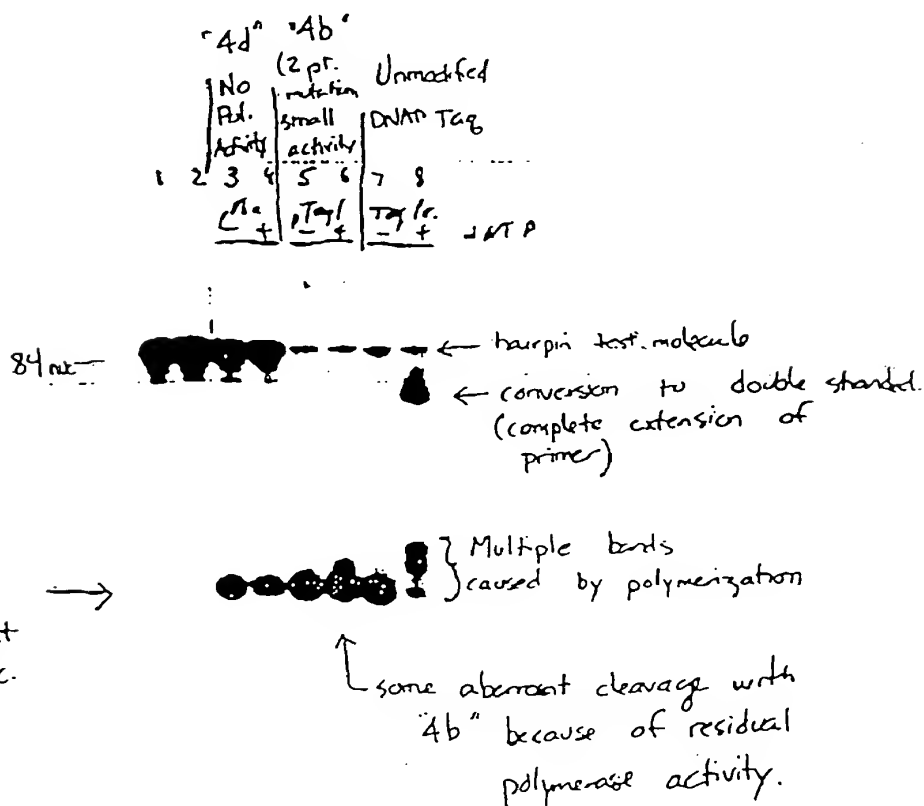 "4d" "4b"
No (2 pt. Unmodified
Pol. mutation
Activity small DNAP Taq
activity
1 2 3 4 5 6 7 8
+ - + - +
84 nt
← hairpin test molecule
← conversion to double stranded.
(complete extension of
primer)
Multiple bands
caused by polymerization
some aberrant cleavage with
"4b" because of residual
polymerase activity.